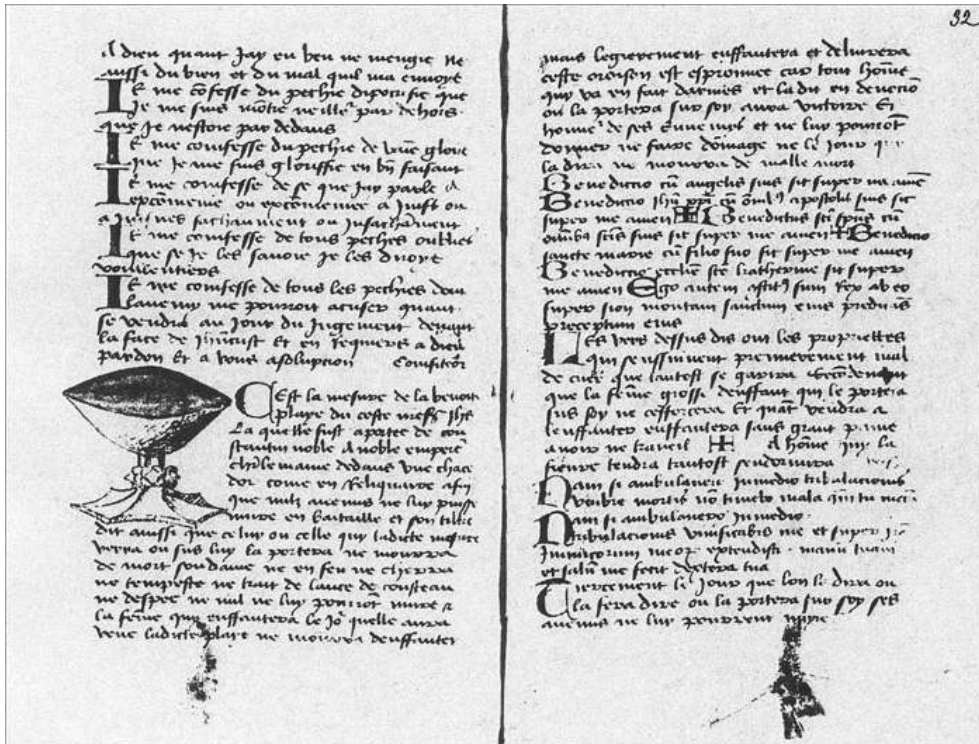 A dieu quant Jay eu ben ne mengie ne
aussi du bien et du mal quil ma envoye
IE me cõfesse du pechie dipocrisie que
Je me suis mõtre meille par dehors
que Je nestoie par dedans
IE me comfesse du pechie de vaine gloire
que Je me suis gloriffie en bñ faisant
IE me comfesse de se que Jay parle a
ou excõmenie a Just ou
a sachamment ou
IE me comfesse de tous peches oublies
que se Je les savoie Je les diroye
voullentiers
IE me comfesse de tous les pechies dont
lanemy me pourroit acuser quant
se vendra au Jour du Jugement devant
la face de Jhũcrist et en Requiers a dieu
pardon Et a vous asoluption Confiteor
CEst la mesure de la benoite
playe du coste nresr Jhs
La quelle fust aportee de con
stantin noble A noble emperer
Charlemaine dedans une chace
dor come en Reliquaire afin
que nulz anemis ne luy puisse
nuire en bataille et son
dit aussi que celuy ou celle qui ladicte mesure
verra ou sus luy la portera ne mourra
de mort soudaine ne en feu ne cherra
ne tempeste ne trait de lance de couteau
ne despee ne nul ne luy pourrot nuire a
la feme que enffantera le Jor quelle aura
veue ladicte playe ne mourra denffanter
32
mais legierement enffantera et delivrera
ceste oroison est esprouvee car tout home
quy va en fait darmes et la dit en devocio
ou la portera sur soy aura victoire Et
honneur de ses Ennemis et ne luy pourrot
donner ne faire domaige ne le Jour que
la dira ne mourra de malle mort
Benediccio cũ angelis suis sit super me amẽ
Benediccio Jhũ xpi cũ omĩbus apostolis suis sit
super me amen + Benedictus scũs spũs cũ
omĩbus scĩs suis sit super me amen + Benediccio
sancte marie cũ filio suo sit super me amen
Benediccio ecclie ste katherine sit super
me amen Ego autem sum Rex ab eo
super sion montam sanctum eius predicãs
preceptum eius
LEs vers dessus dis ont les proprietes
qui premierement mal
de cuer que tantost se garira Secondement
que la feme grosse denffant qui le portera
sus soy ne Et quãt vendra a
lenffanter enffantera sans grant peine
avoir ne traveil + A home qui la
fievre tendra tantost sendormira
Nam si ambulavero Inmedio tribulacionis
umbre mortis nõ timebo mala qm̃ tu mecũ
Nam si ambulavero Inmedio
tribulacionis vivificabis me et super
Inimicorum meor extendisti manũ tuam
et salũ me fecit dextera tua
Tiercement le Jour que lon le dira ou
la fera dire ou la portera sus soy ses
anemis ne luy pourront nuyre